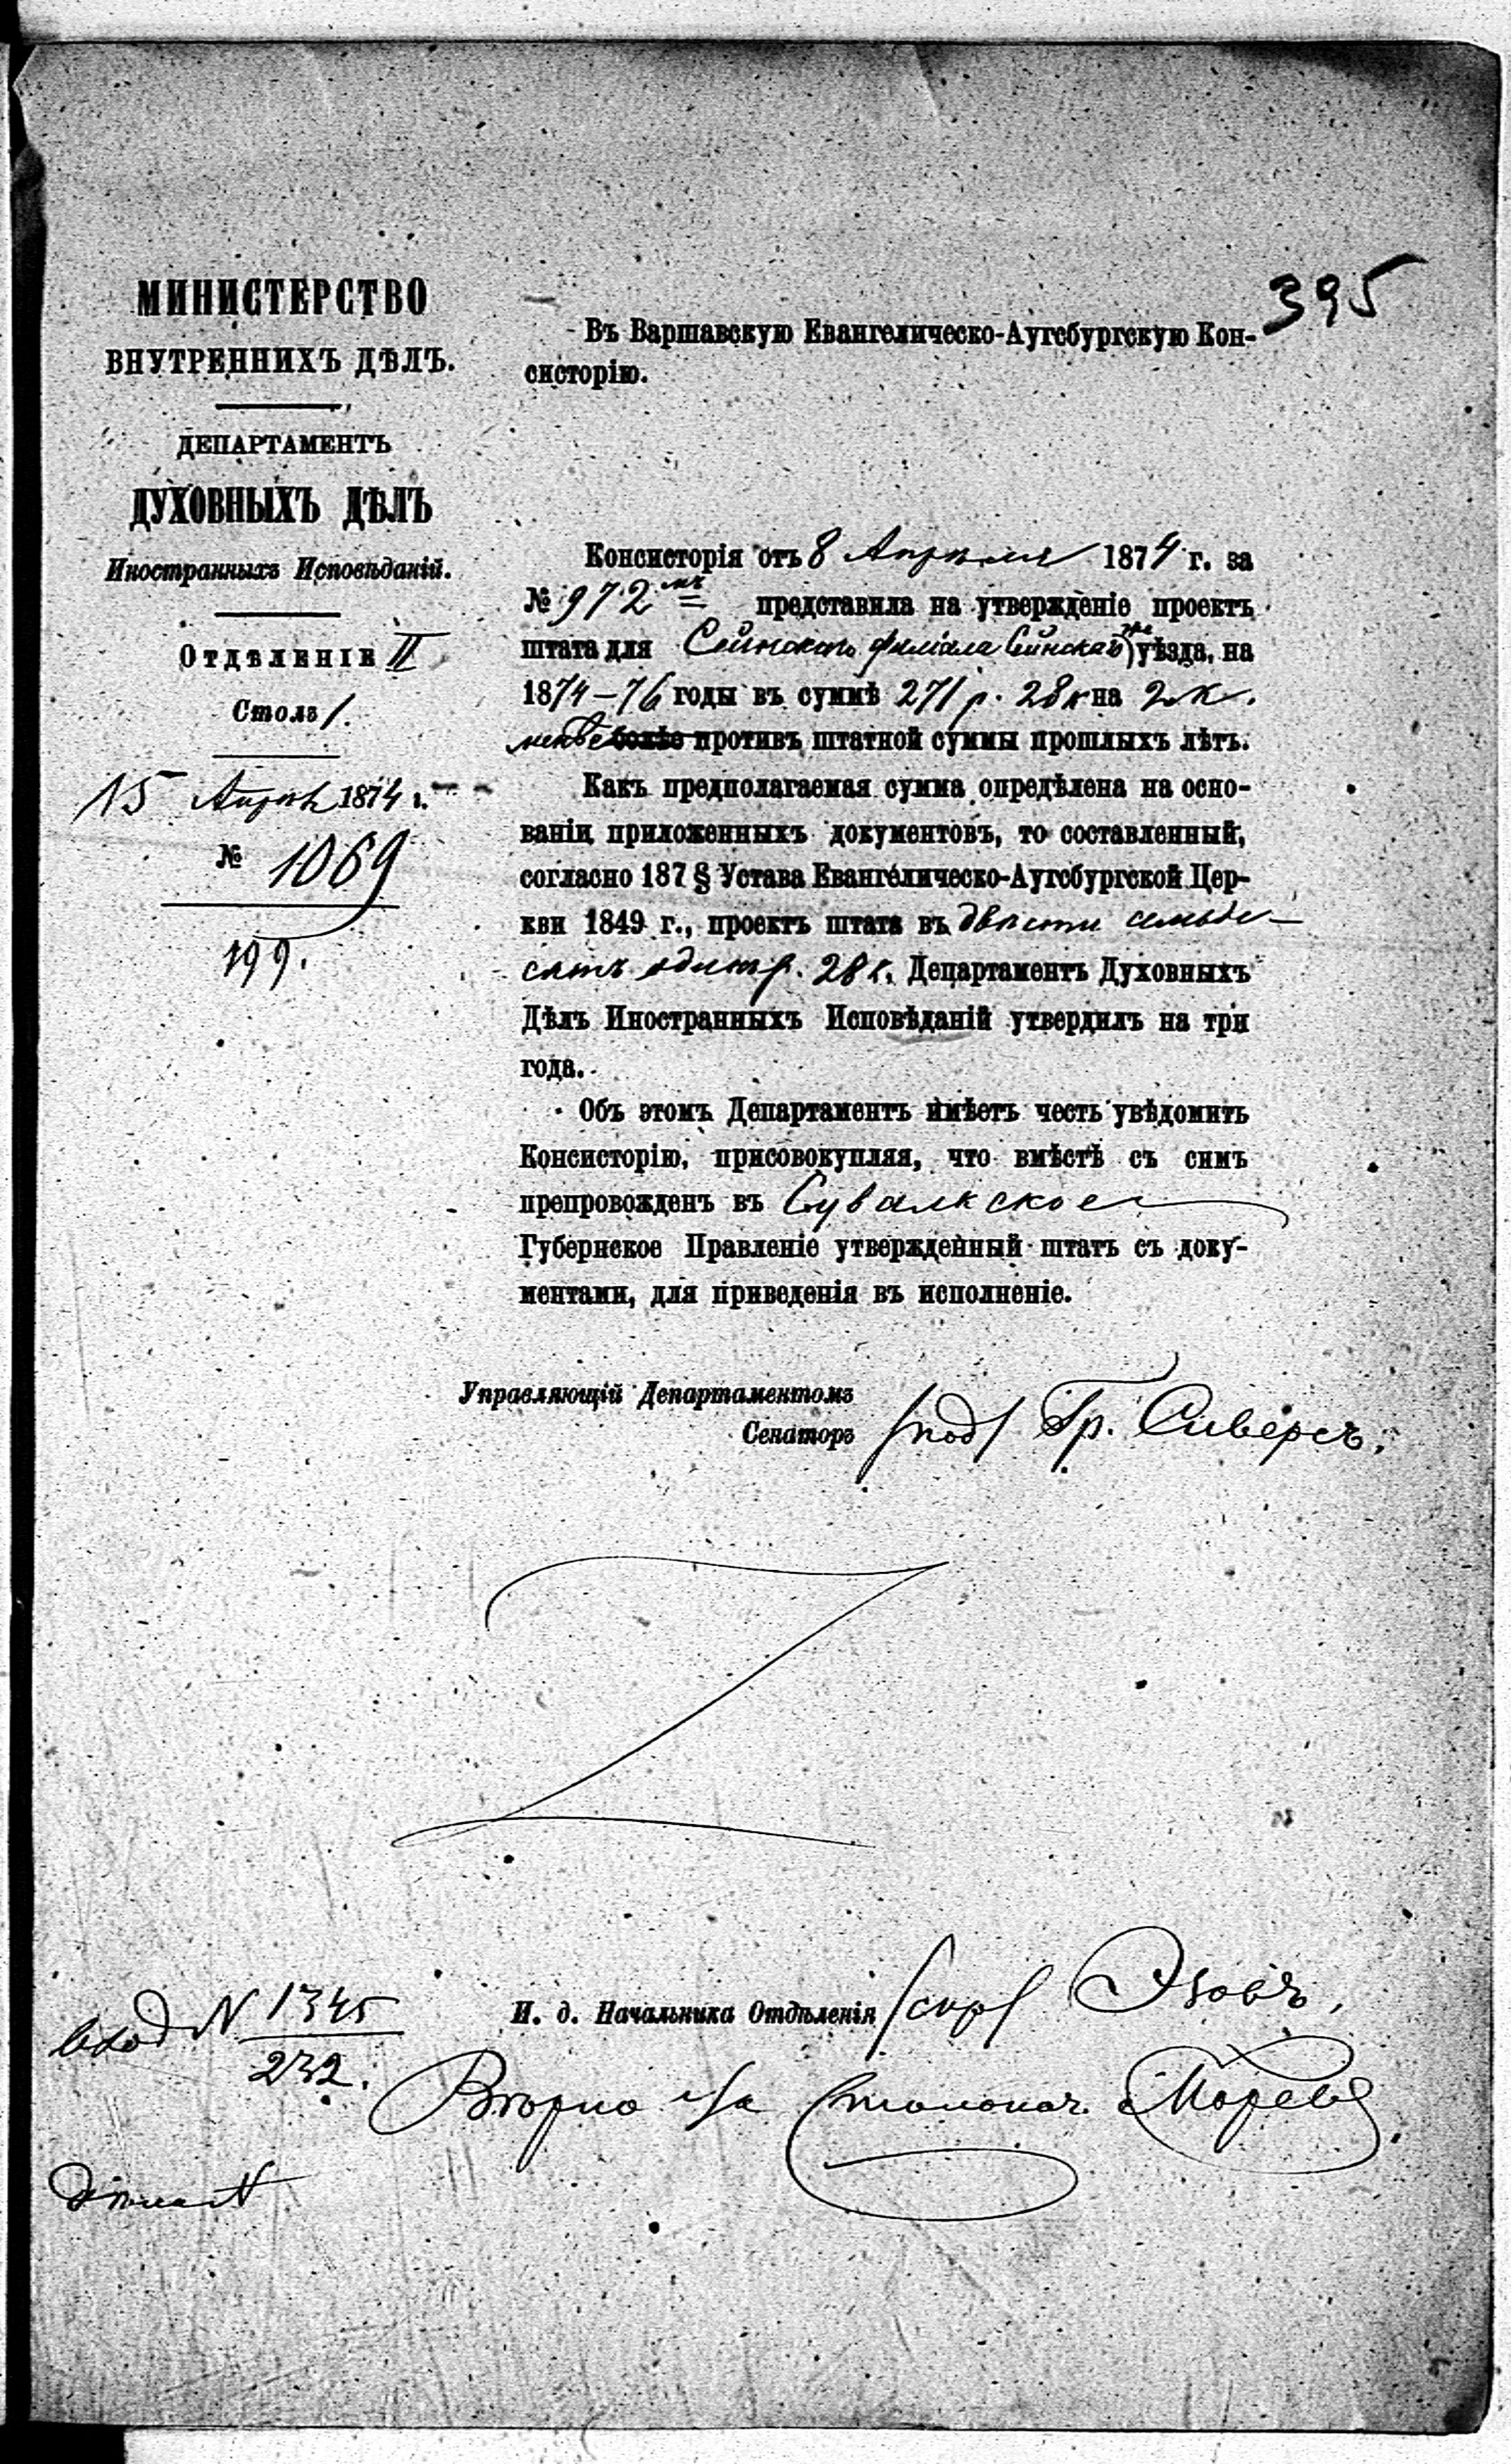 395
МИНИСТЕРСТВО
ВНУТРЕННИХЪ ДѢЛЪ.
ДЕПАРТАМЕНТЪ
ДУХОВНЫХЪ ДѢЛЪ
Иностранныхъ Исповѣданій.
Отдѣленіе II
Столъ 1.
15 Апрѣл 1874 г.
№ 1069
199.
Въ Варшавскую Евангелическо-Аугсбургскую Кон-
систорію.
Консисторія отъ 8 Апрѣля 1874 г. за
№ 972 мъ представила на утвержденіе проектъ
штата для Сейнскаго филіала Сейнскаго уѣзда, на
1874-76 годы въ суммѣ 271 р. 28 к на 2 к.
менѣе болѣе противъ штатной суммы прошлыхъ лѣтъ.
Какъ предполагаемая сумма опредѣлена на осно-
ваніи приложенныхъ документовъ, то составленный,
согласно 187 § Устава Евангелическо-Аугсбургской Цер-
кви 1849 г., проектъ штата въ двѣсти семьде-
сятъ одинъ р. 28 к. Департаментъ Духовныхъ
Дѣлъ Иностранныхъ Исповѣданій утвердилъ на три
года.
Объ этомъ Департаментъ имѣетъ честь увѣдомить
Консисторію, присовокупляя, что вмѣстѣ съ симъ
препровожденъ въ Сувалкское
Губернское Правленіе утвержденный штатъ съ доку-
ментами, для приведенія въ исполненіе.
Управляющій Департаментомъ
Сенаторъ /под/ Гр. Сиверсъ.
И. д. Начальника Отдѣленія /скр/ Эзовъ.
вход N 1345
232.
Вѣрно за Столонач. Моревъ